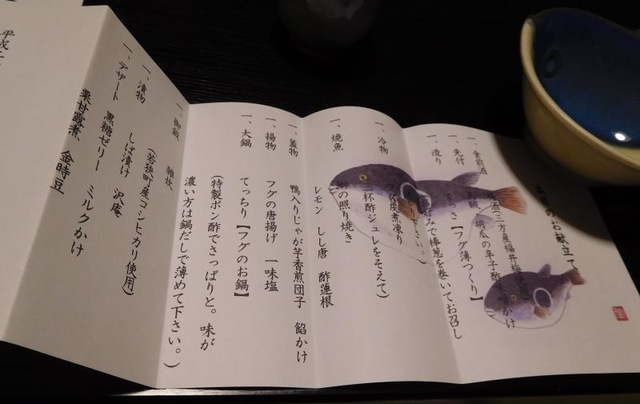 のお献立
一、食前酒
酒(三方産福井梅
一、先付
胡瓜の辛子酢
かけ
一、造り
さ【フグ薄つくり】
みで棒葱を巻いてお召し
さい。)
一、冷物
煮凍り
(二杯酢ジュレをそえて)
一、焼魚
の照り焼き
レモン しし唐 酢蓮根
一、蓋物
鴨入りじゃが芋香煎団子 餡かけ
一、揚物
フグの唐揚げ 一味塩
一、大鍋
てっちり【フグのお鍋】
(特製ポン酢でさっぱりと。味が
濃い方は鍋だしで薄めて下さい。)
一、御飯
雑炊
(若狭町産コシヒカリ使用)
一、漬物
しば漬け 沢庵
一、デザート
黒糖ゼリー ミルクかけ
栗甘露煮 金時豆
平成